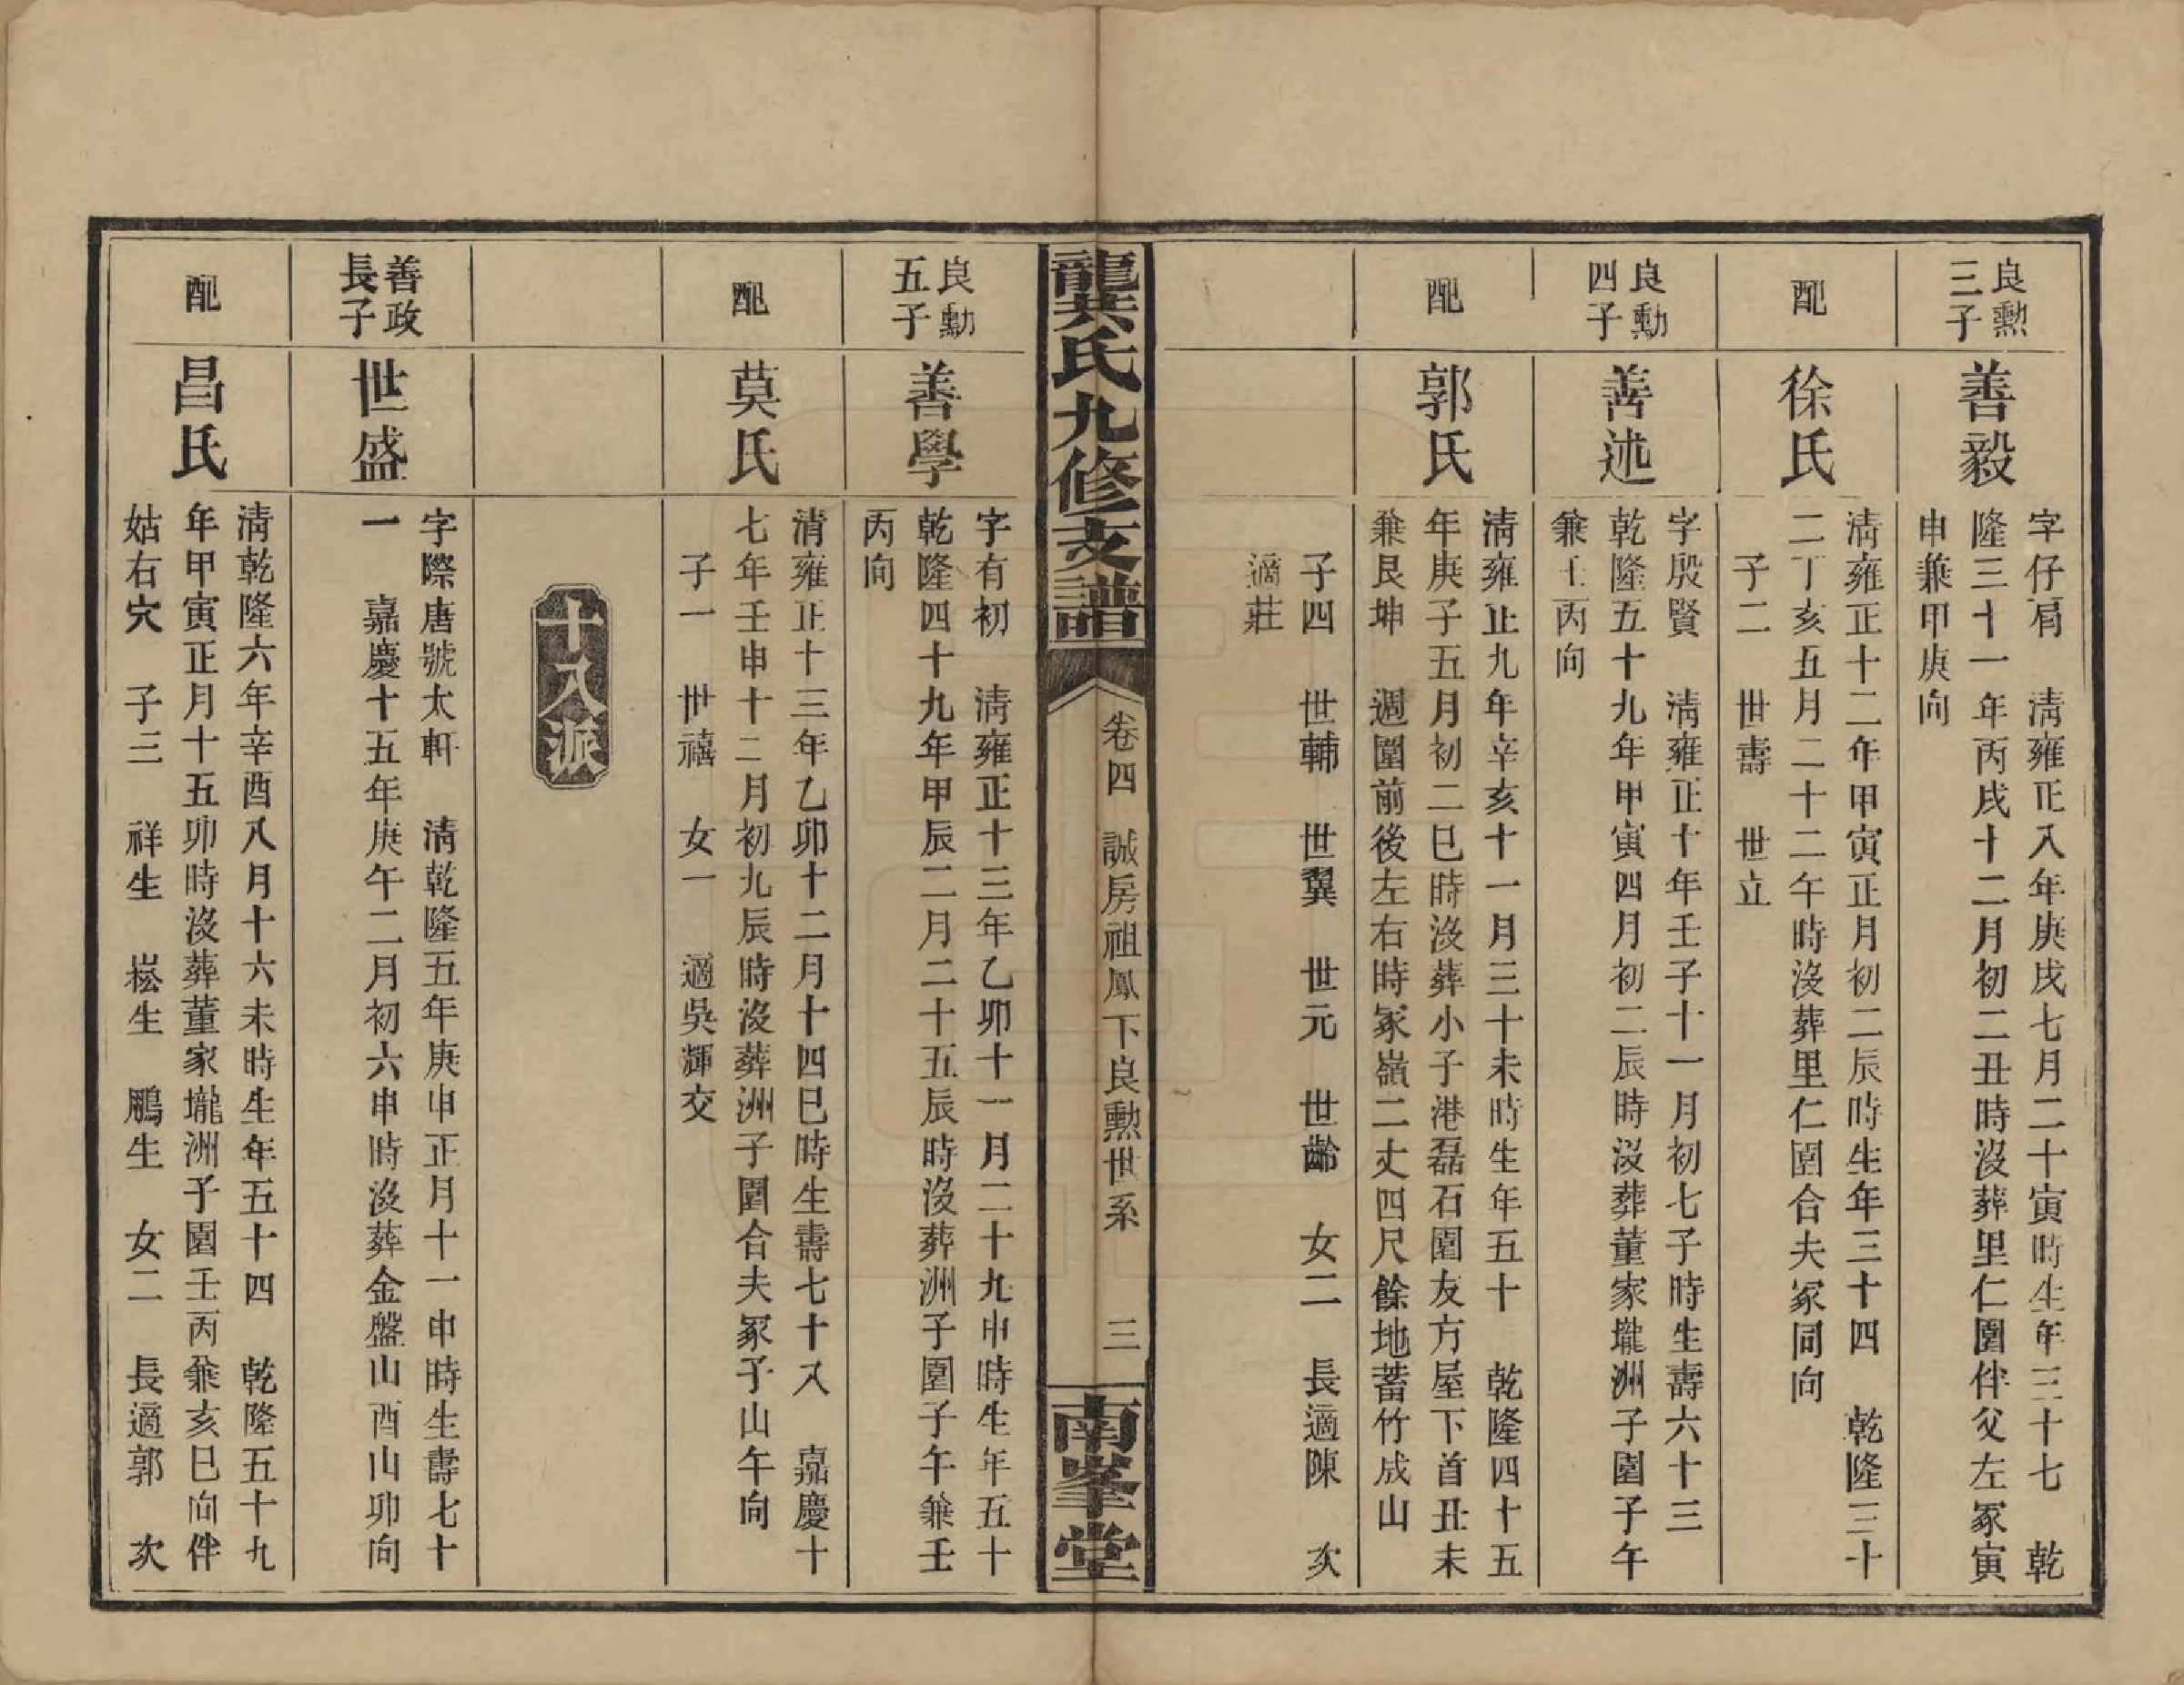 良勳
三子
善毅
字仔肩　清雍正八年庚戌七月二十寅時生年三十七　乾
隆三十一年丙戌十二月初二丑時沒葬里仁園伴父左冢寅
申兼甲庚向
配
徐氏
清雍正十二年甲寅正月初二辰時生年三十四　乾隆三十
二丁亥五月二十二午時沒葬里仁園合夫冢同向
子二　世壽　世立
良勳
四子
善述
字殷賢　清雍正十年壬子十一月初七子時生壽六十三
乾隆五十九年甲寅四月初二辰時沒葬董家壠洲子園子午
兼壬丙向
配
郭氏
清雍正九年辛亥十一月三十未時生年五十　乾隆四十五
年庚子五月初二巳時沒葬小子港磊石園友方屋下首丑未
兼艮坤　週圍前後左右時冢嶺二丈四尺餘地蓄竹成山
子四　世輔　世翼　世元　世齡　女二　長適陳　次
適莊
龍龔氏九修支譜
卷四　誠房祖鳳下良勳世系　三
南峯堂
良勳
五子
善學
字有初　清雍正十三年乙卯十一月二十九申時生年五十
乾隆四十九年甲辰二月二十五辰時沒葬洲子園子午兼壬
丙向
配
莫氏
清雍正十三年乙卯十二月十四巳時生壽七十八　嘉慶十
七年壬申十二月初九辰時沒葬洲子園合夫冢子山午向
子一　世禧　女一　適吳輝交
十八派
善政
長子
世盛
字際唐號太軒　清乾隆五年庚申正月十一申時生壽七十
一　嘉慶十五年庚午二月初六申時沒葬金盤山酉山卯向
配
昌氏
清乾隆六年辛酉八月十六未時生年五十四　乾隆五十九
年甲寅正月十五卯時沒葬董家壠洲子園壬丙兼亥巳向伴
姑右穴　子三　祥生　崧生　鵬生　女二　長適郭　次